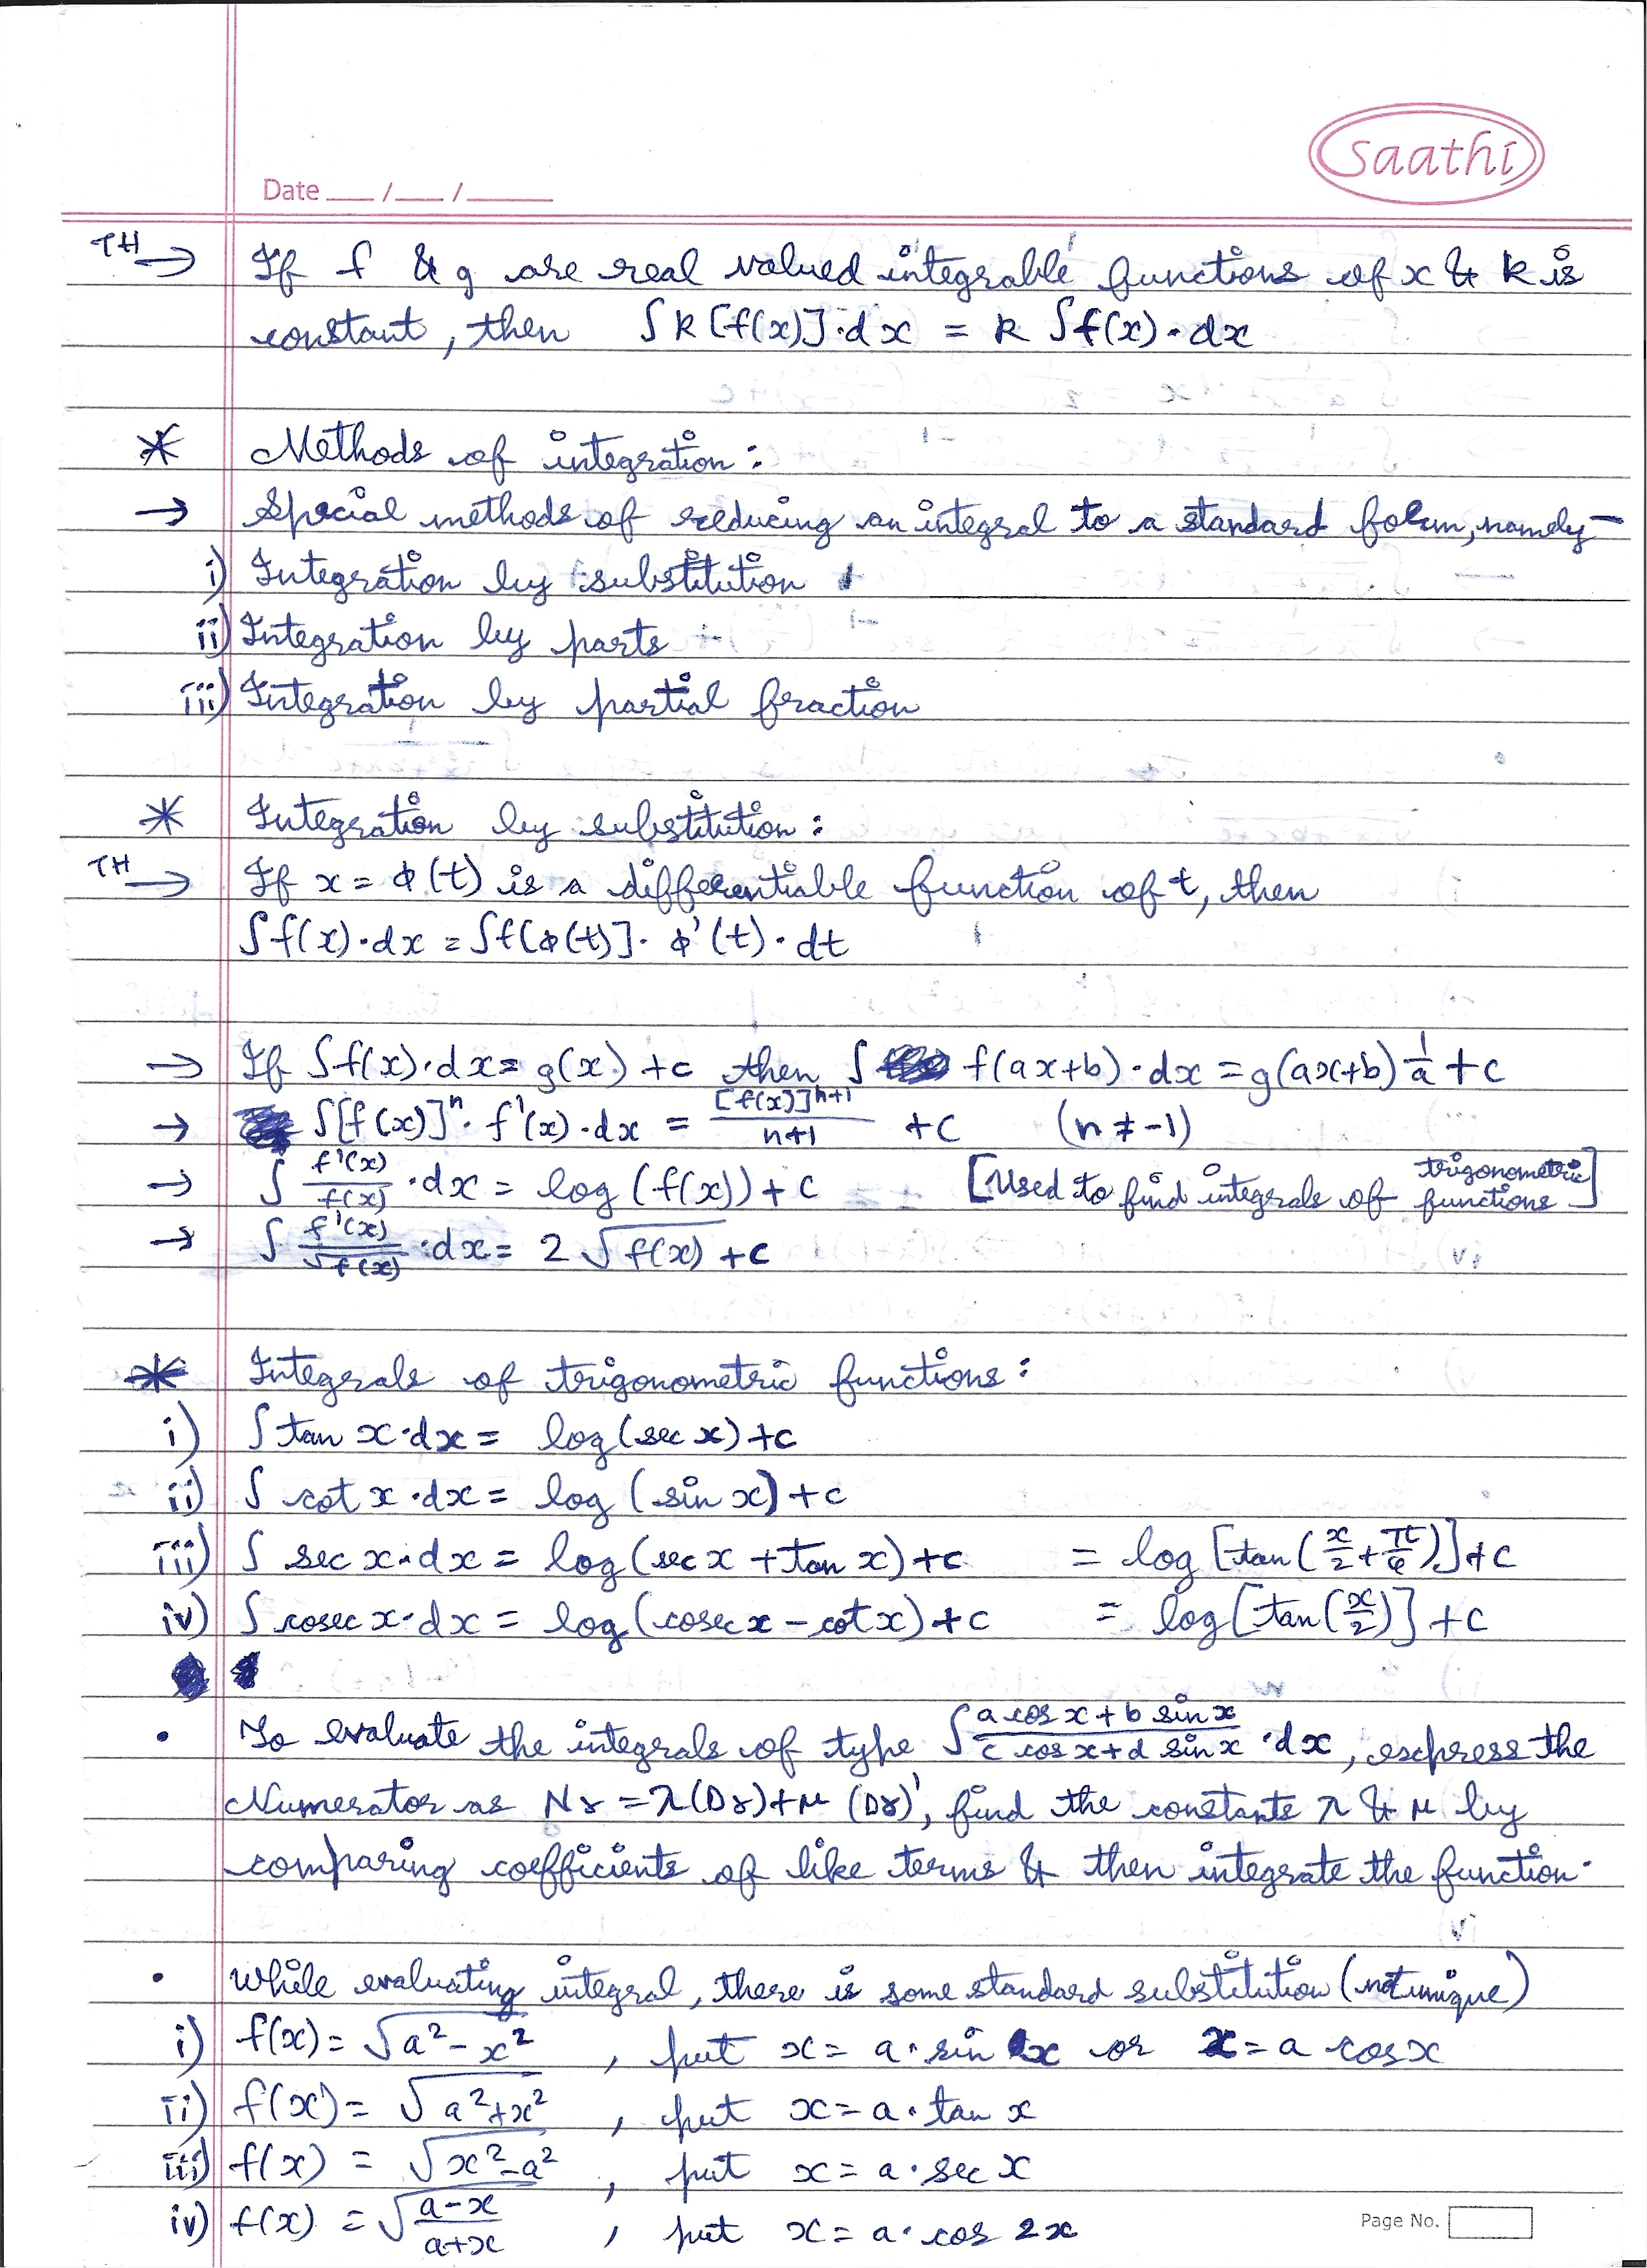 saathi
Date ___/___/_____
TH → If f & g are real valued integrable functions of x & k is
constant, then ∫k[f(x)]·dx = k ∫f(x)·dx
* Methods of integration:
→ Special methods of reducing an integral to a standard form, namely-
i) Integration by substitution
ii) Integration by parts
iii) Integration by partial fraction
* Integration by substitution:
TH → If x = ϕ(t) is a differentiable function of t, then
∫f(x)·dx = ∫f[ϕ(t)]·ϕ'(t)·dt
→ If ∫f(x)·dx = g(x)+c then ∫ f(ax+b)·dx = g(ax+b) 1/a + c
→ ∫[f(x)]ⁿ·f'(x)·dx = [f(x)]ⁿ⁺¹/n+1 + c (n ≠ -1)
→ ∫ f'(x)/f(x) ·dx = log(f(x))+c [Used to find integrals of trigonometric functions]
→ ∫ f'(x)/√f(x) ·dx = 2√f(x) + c
* Integrals of trigonometric functions:
i) ∫tan x·dx = log(sec x)+c
ii) ∫ cot x·dx = log(sin x)+c
iii) ∫ sec x·dx = log(sec x + tan x)+c = log[tan(x/2 + π/4)]+c
iv) ∫ cosec x·dx = log(cosec x - cot x)+c = log[tan(x/2)]+c
• To evaluate the integrals of type ∫ a cos x + b sin x / c cos x + d sin x ·dx, express the
Numerator as Nr = λ(Dr)+μ(Dr)', find the constants λ & μ by
comparing coefficients of like terms & then integrate the function.
• While evaluating integral, there is some standard substitution (not unique)
i) f(x) = √a²-x² , put x = a·sin x or x = a cos x
ii) f(x) = √a²+x² , put x = a·tan x
iii) f(x) = √x²-a² , put x = a·sec x
iv) f(x) = √a-x/a+x , put x = a·cos 2x
Page No.